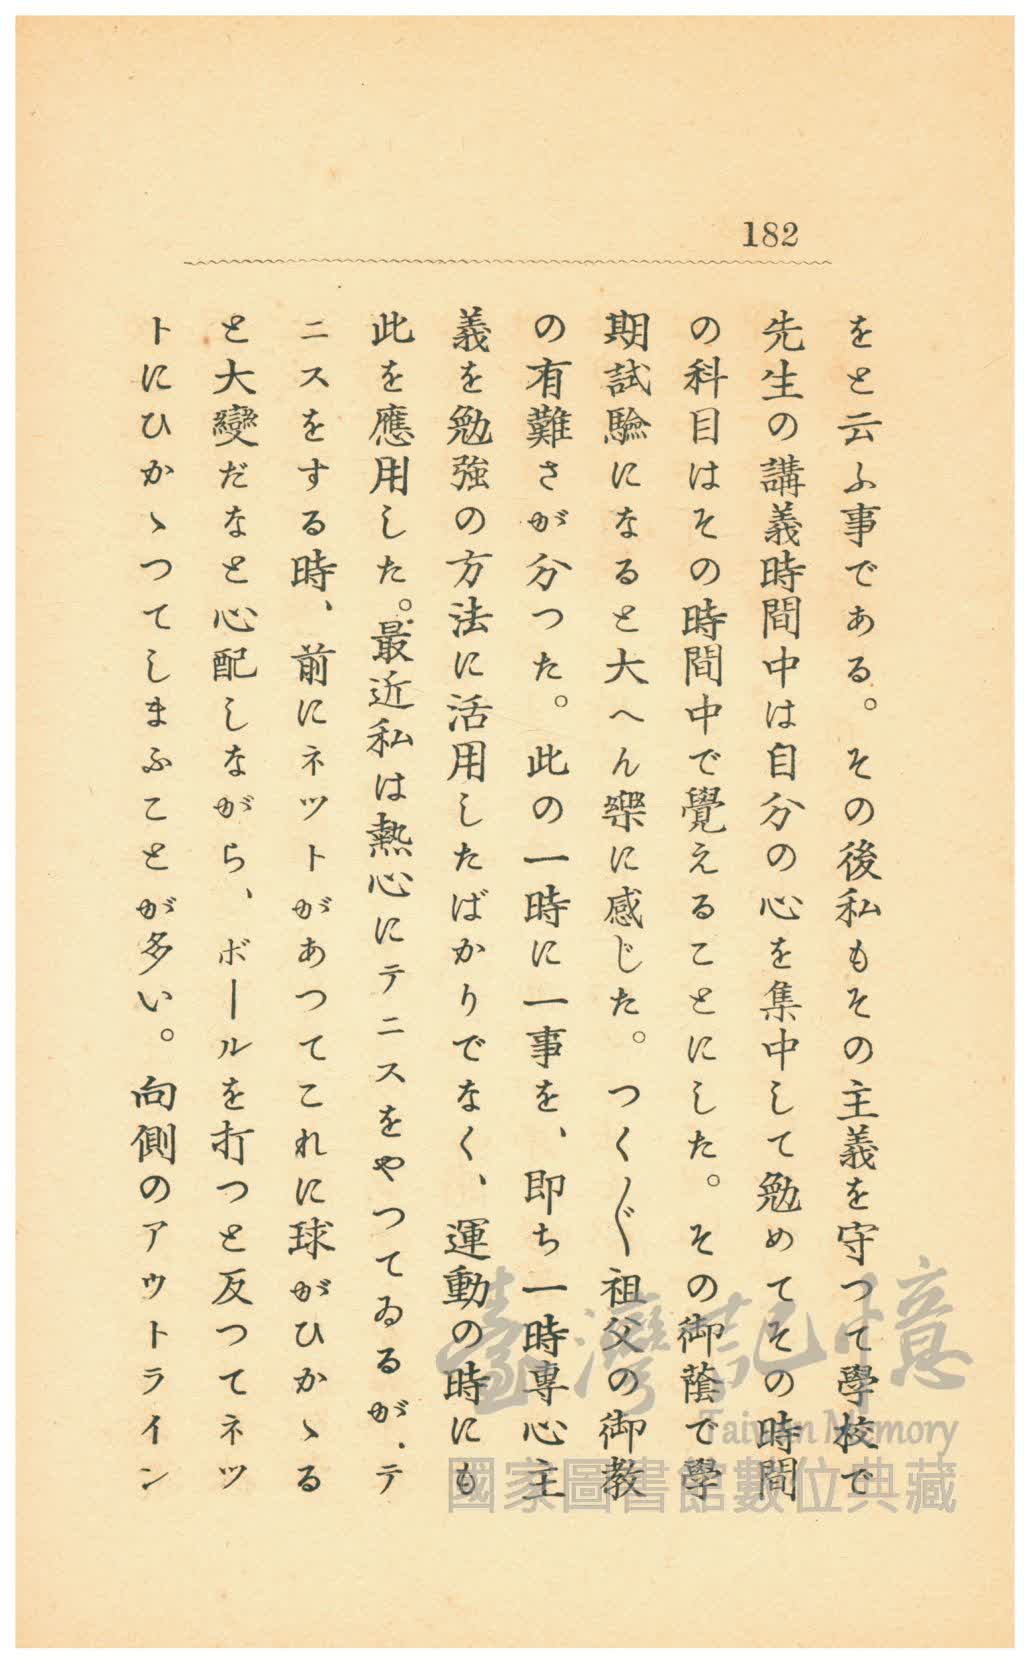 182
をと云ふ事である。その後私もその主義を守つて學校で
先生の講義時間中は自分の心を集中して勉めてその時間
の科目はその時間中で覺えることにした。その御蔭で學
期試驗になると大へん樂に感じた。つく〲祖父の御教
の有難さが分つた。此の一時に一事を、即ち一時專心主
義を勉強の方法に活用したばかりでなく、運動の時にも
此を應用した。最近私は熱心にテニスをやつてゐるが、テ
ニスをする時、前にネツトがあつてこれに球がひかゝる
と大變だなと心配しながら、ボールを打つと反つてネツ
トにひかゝつてしまふことが多い。向側のアウトライン
臺灣記憶
Taiwan Memory
國家圖書館數位典藏